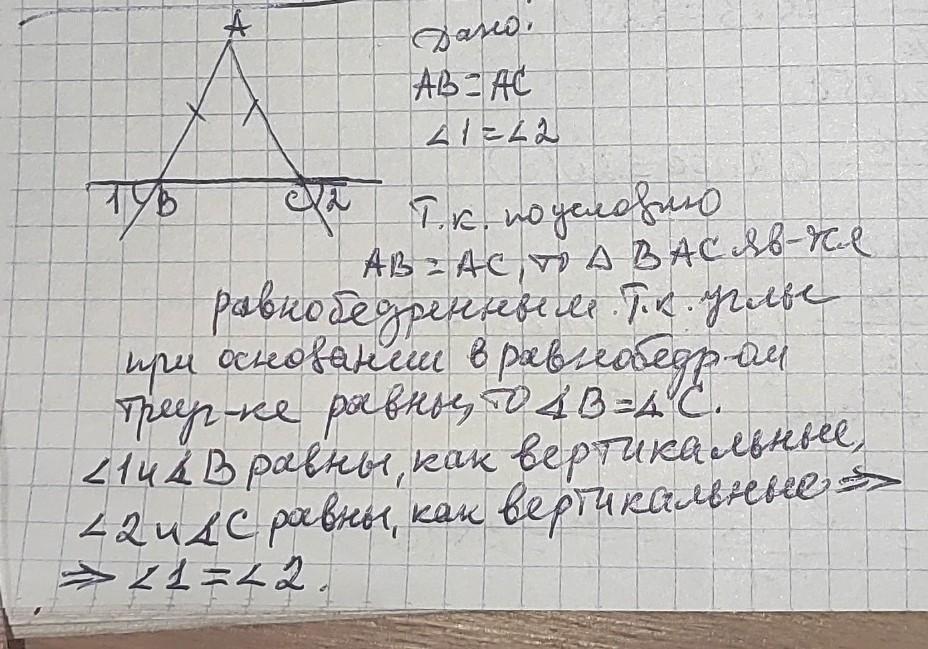 A
Дано:
AB = AC
∠1 = ∠2
1 B C 2
Т.к. по условию
AB = AC, то Δ BAC яв-ся
равнобедренным. Т.к. углы
при основании в равнобедр-ом
треуг-ке равны, то ∠B = ∠C.
∠1 и ∠B равны, как вертикальные,
∠2 и ∠C равны, как вертикальные ⇒
⇒ ∠1 = ∠2.